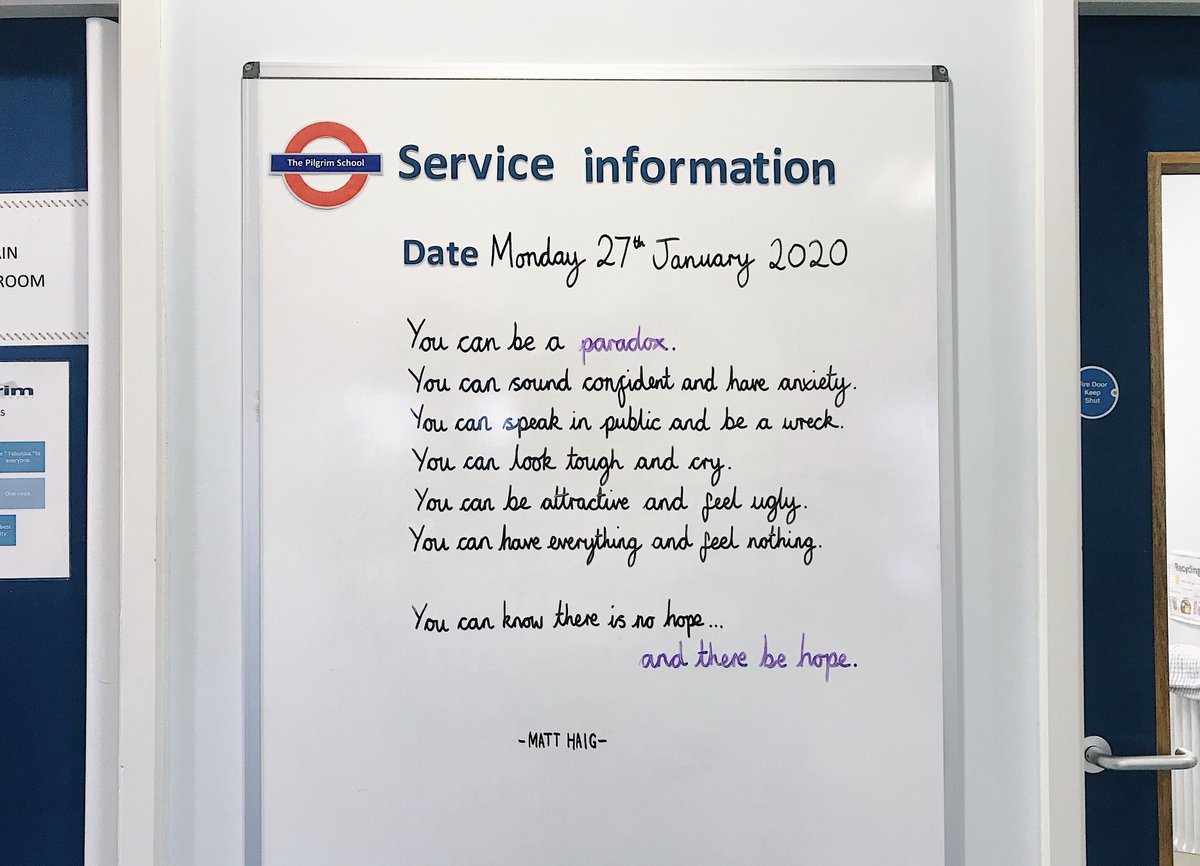 The Pilgrim School
Service information
Date Monday 27th January 2020
You can be a paradox.
You can sound confident and have anxiety.
You can speak in public and be a wreck.
You can look tough and cry.
You can be attractive and feel ugly.
You can have everything and feel nothing.
You can know there is no hope...
and there be hope.
-MATT HAIG-
ROOM
"Fabulous" to
everyone.
One voice.
best
Fire Door
Keep
Shut
Recycling